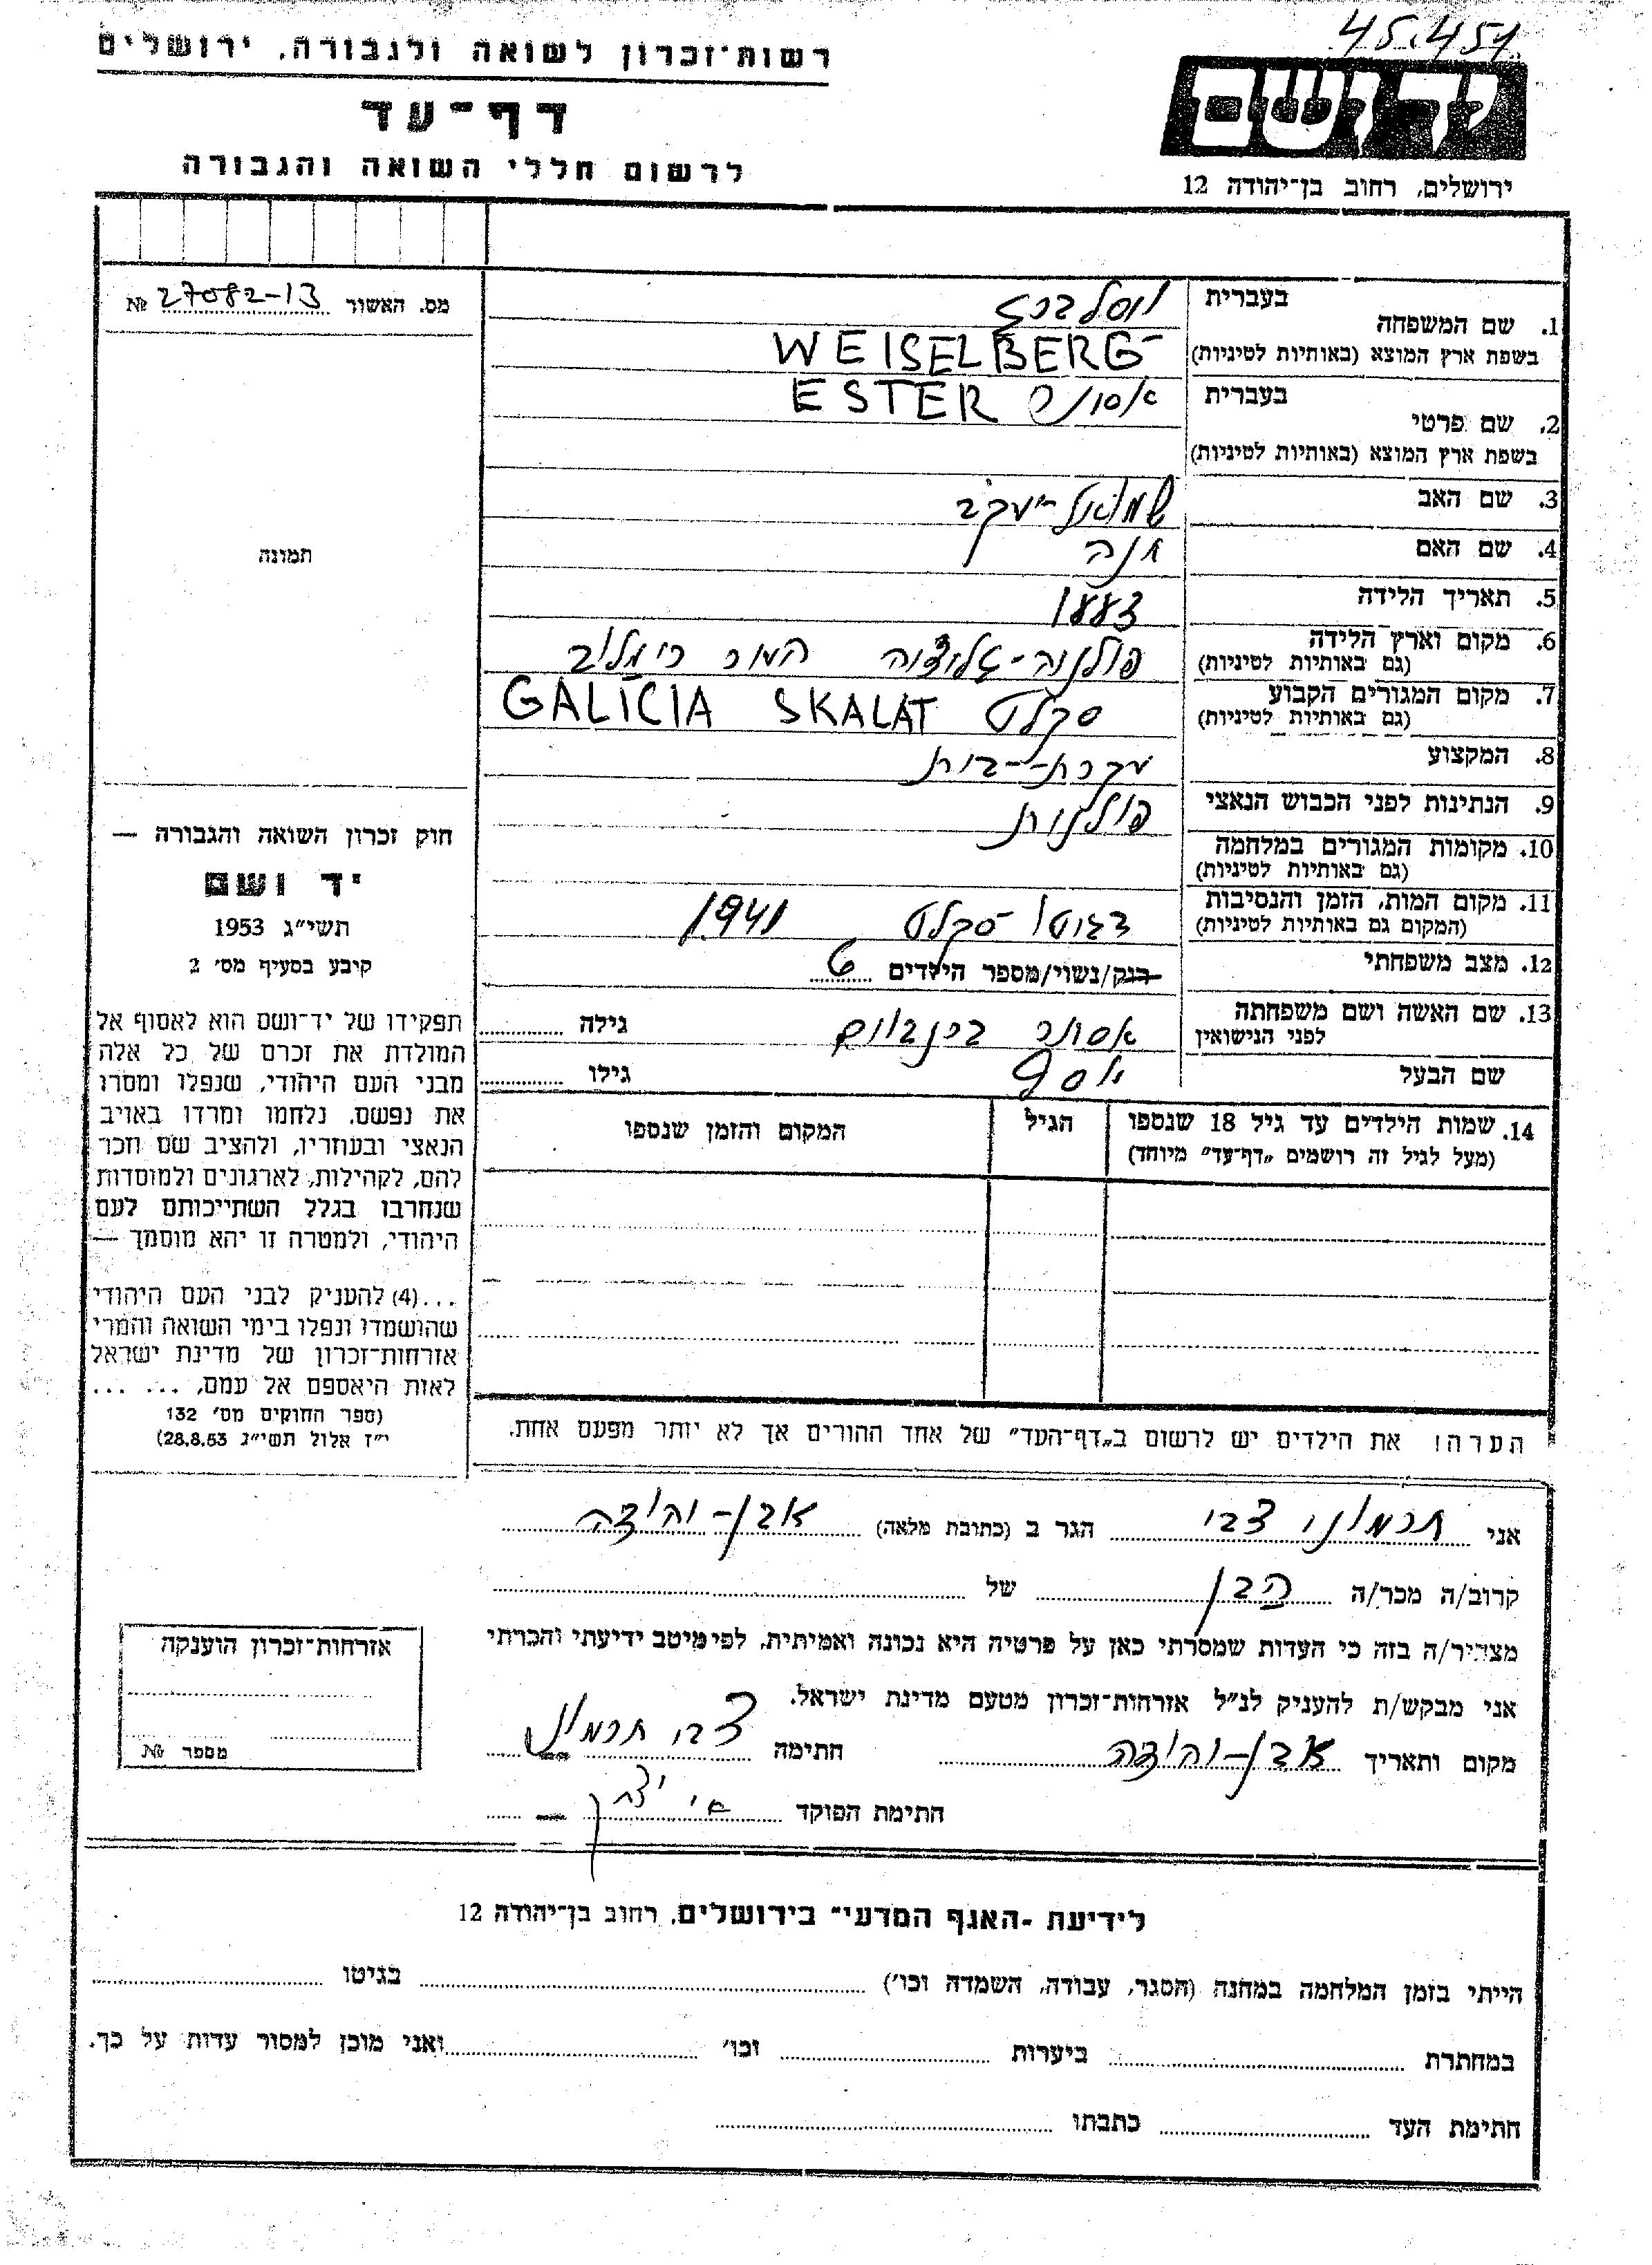 45.451
רשות־זכרון לשואה ולגבורה, ירושלים
דף־עד
לרשום חללי השואה והגבורה
יד ושם
ירושלים, רחוב בן־יהודה 12
מס. האשור 27082-13 №
תמונה
1. שם המשפחה
בעברית
וסלברג
בשפת ארץ המוצא (באותיות לטיניות) WEISELBERG
2. שם פרטי
בעברית
אסתר ESTER
בשפת ארץ המוצא (באותיות לטיניות)
3. שם האב שמואל-יעקב
4. שם האם חנה
5. תאריך הלידה 1883
6. מקום וארץ הלידה
(גם באותיות לטיניות) פולניה-גליציה
7. מקום המגורים הקבוע
(גם באותיות לטיניות) סקלט SKALAT GALICIA
8. המקצוע עקרת-בית
9. הנתינות לפני הכבוש הנאצי פולנית
10. מקומות המגורים במלחמה
(גם באותיות לטיניות)
11. מקום המות, הזמן והנסיבות
(המקום גם באותיות לטיניות) בגיטו סקלט 1941
12. מצב משפחתי רנק/נשוי/מספר הילדים 6
13. שם האשה ושם משפחתה
לפני הנישואין אסתר בירנבוים גילה
שם הבעל יוסף גילו
14. שמות הילדים עד גיל 18 שנספו
(מעל לגיל זה רושמים „דף־עד” מיוחד)
הגיל
המקום והזמן שנספו
הערה: את הילדים יש לרשום ב„דף־העד” של אחד ההורים אך לא יותר מפעם אחת.
חוק זכרון השואה והגבורה —
יד ושם
תשי״ג 1953
קיבע בסעיף מס׳ 2
תפקידו של יד־ושם הוא לאסוף אל
המולדת את זכרם של כל אלה
מבני העם היהודי, שנפלו ומסרו
את נפשם, נלחמו ומרדו באויב
הנאצי ובעוזריו, ולהציב שם וזכר
להם, לקהילות, לארגונים ולמוסדות
שנחרבו בגלל השתייכותם לעם
היהודי, ולמטרה זו יהא מוסמך —
...(4) להעניק לבני העם היהודי
שהושמדו ונפלו בימי השואה והמרי
אזרחות־זכרון של מדינת ישראל
לאות היאספם אל עמם, ... ...
(ספר החוקים מס׳ 132
י״ז אלול תשי״ג 28.8.53)
אני חרמוני צבי הגר ב (כתובת מלאה) אבן-יהודה
קרוב/ה מכר/ה הבן של
מצהיר/ה בזה כי העדות שמסרתי כאן על פרטיה היא נכונה ואמיתית, לפי מיטב ידיעתי והכרתי
אני מבקש/ת להעניק לנ״ל אזרחות־זכרון מטעם מדינת ישראל.
מקום ותאריך אבן-יהודה חתימה צבי חרמוני
חתימת הפוקד
אזרחות־זכרון הוענקה
מספר №
לידיעת „האגף המדעי” בירושלים, רחוב בן־יהודה 12
הייתי בזמן המלחמה במחנה (הסגר, עבודה, השמדה וכו׳) בגיטו
במחתרת ביערות וכו׳ ואני מוכן למסור עדות על כך.
חתימת העד כתבתו